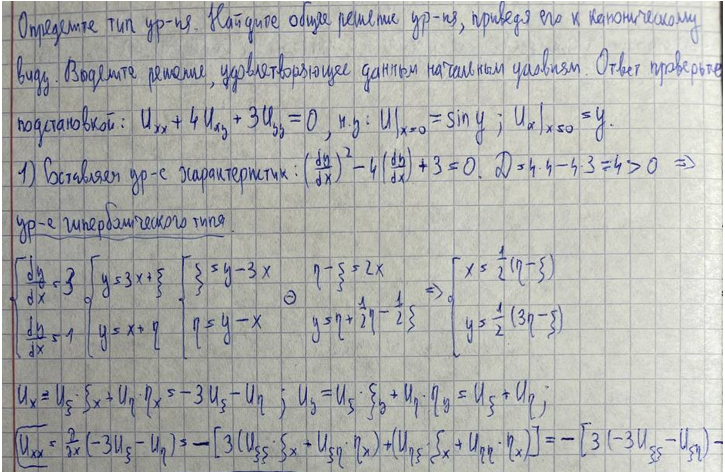 Определите тип ур-ия. Найдите общее решение ур-ия, приведя его к каноническому
виду. Выделите решение, удовлетворяющее данным начальным условиям. Ответ проверьте
подстановкой: Uxx + 4Uxy + 3Uyy = 0, н.у: U|x=0 = sin y; Ux|x=0 = y.
1) Составляем ур-е характеристик: (dy/dx)² - 4(dy/dx) + 3 = 0. D = 4·4 - 4·3 = 4 > 0 ⇒
ур-е гиперболического типа.
[dy/dx = 3 [y = 3x + ξ [ξ = y - 3x ⊖ η - ξ = 2x ⇒ [x = 1/2(η - ξ)
dy/dx = 1 y = x + η η = y - x y = η + 1/2η - 1/2ξ y = 1/2(3η - ξ)
Ux = Uξ·ξx + Uη·ηx = -3Uξ - Uη ; Uy = Uξ·ξy + Uη·ηy = Uξ + Uη ;
Uxx = ∂/∂x(-3Uξ - Uη) = -[3(Uξξ·ξx + Uξη·ηx) + (Uηξ·ξx + Uηη·ηx)] = -[3(-3Uξξ - Uξη) -